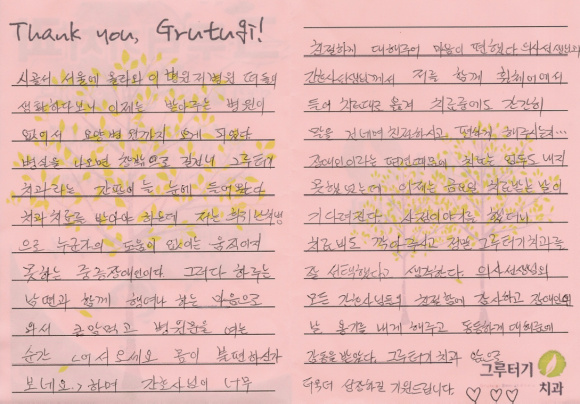 Thank you, Grutugi!
시골서 서울에 올라와 이 병원 저 병원 떠돌이
생활하다보니 이제는 받아주는 병원이
없어서 요양병원까지 오게 되었다
병실을 나오면 창밖으로 길건너 그루터기
치과라는 간판이 눈에 들어왔다
치과치료를 받아야 하는데 저는 희귀난치병
으로 누군가의 도움이 없이는 움직이지
못하는 중증장애인이다. 그러다 하루는
남편과 함께 혹여나 하는 마음으로
와서 큰맘먹고 병원문을 여는
순간 <어서오세요 몸이 불편하신가
보네요.> 하며 간호사님이 너무
친절하게 대해주어 마음이 편했다 의사선생님와
간호사선생님께서 저를 함께 휠체어에서
들어 치료대로 옮겨 치료중에도 간간히
말을 건네며 친절하시고 편하게 해주시는...
장애인이라는 편견때문에 치료는 엄두도 내지
못했었는데 이제는 금요일 치료받는 날이
기다려진다. 사정이야기를 했더니
치료비도 깎아주시고 정말 그루터기치과를
잘 선택했다고 생각한다. 의사선생님와
모든 간호사님들의 친절함에 감사하고 장애인인
날 용기를 내게 해주고 동등하게 대해줌에
감동을 받았다. 그루터기치과 앞으로
더욱더 성장하길 기원드립니다.
그루터기
치과